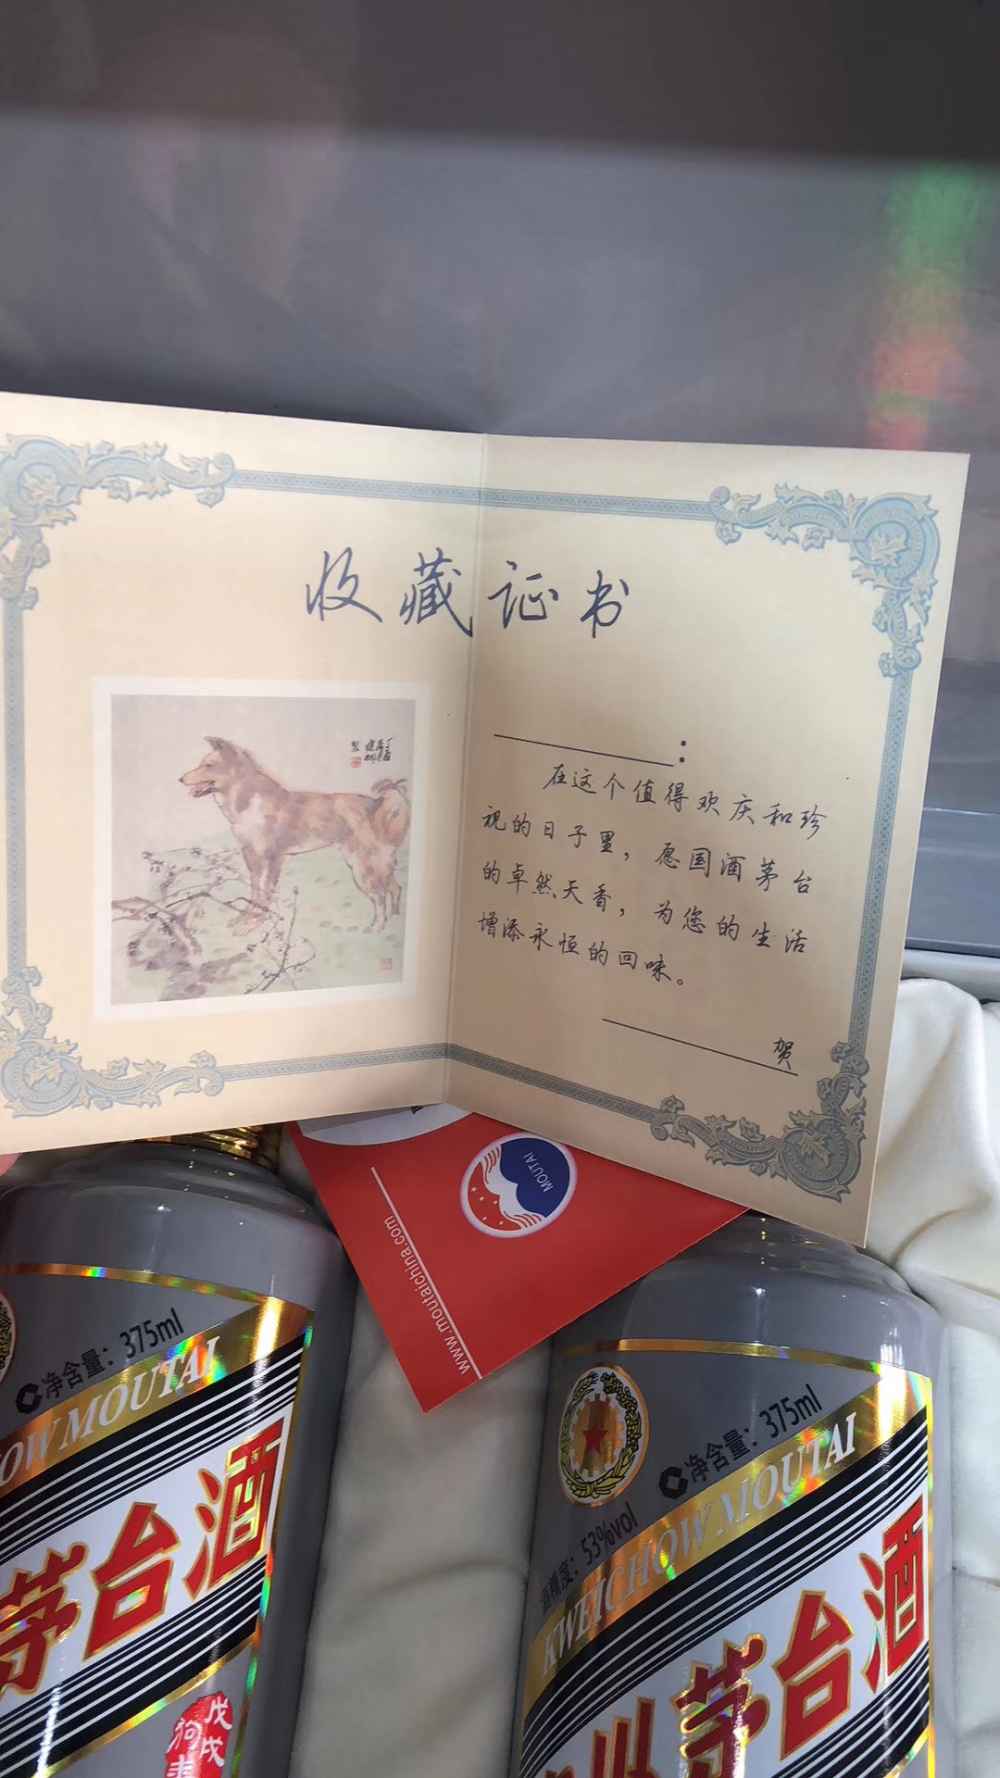 收藏证书
：
在这个值得欢庆和珍
视的日子里，愿国酒茅台
的卓然天香，为您的生活
增添永恒的回味。
贺
MOUTAI
www.moutaichina.com
净含量：375ml
OW MOUTAI
茅台酒
戊戌
狗
净含量：375ml
53%vol
KWEICHOW MOUTAI
州茅台酒